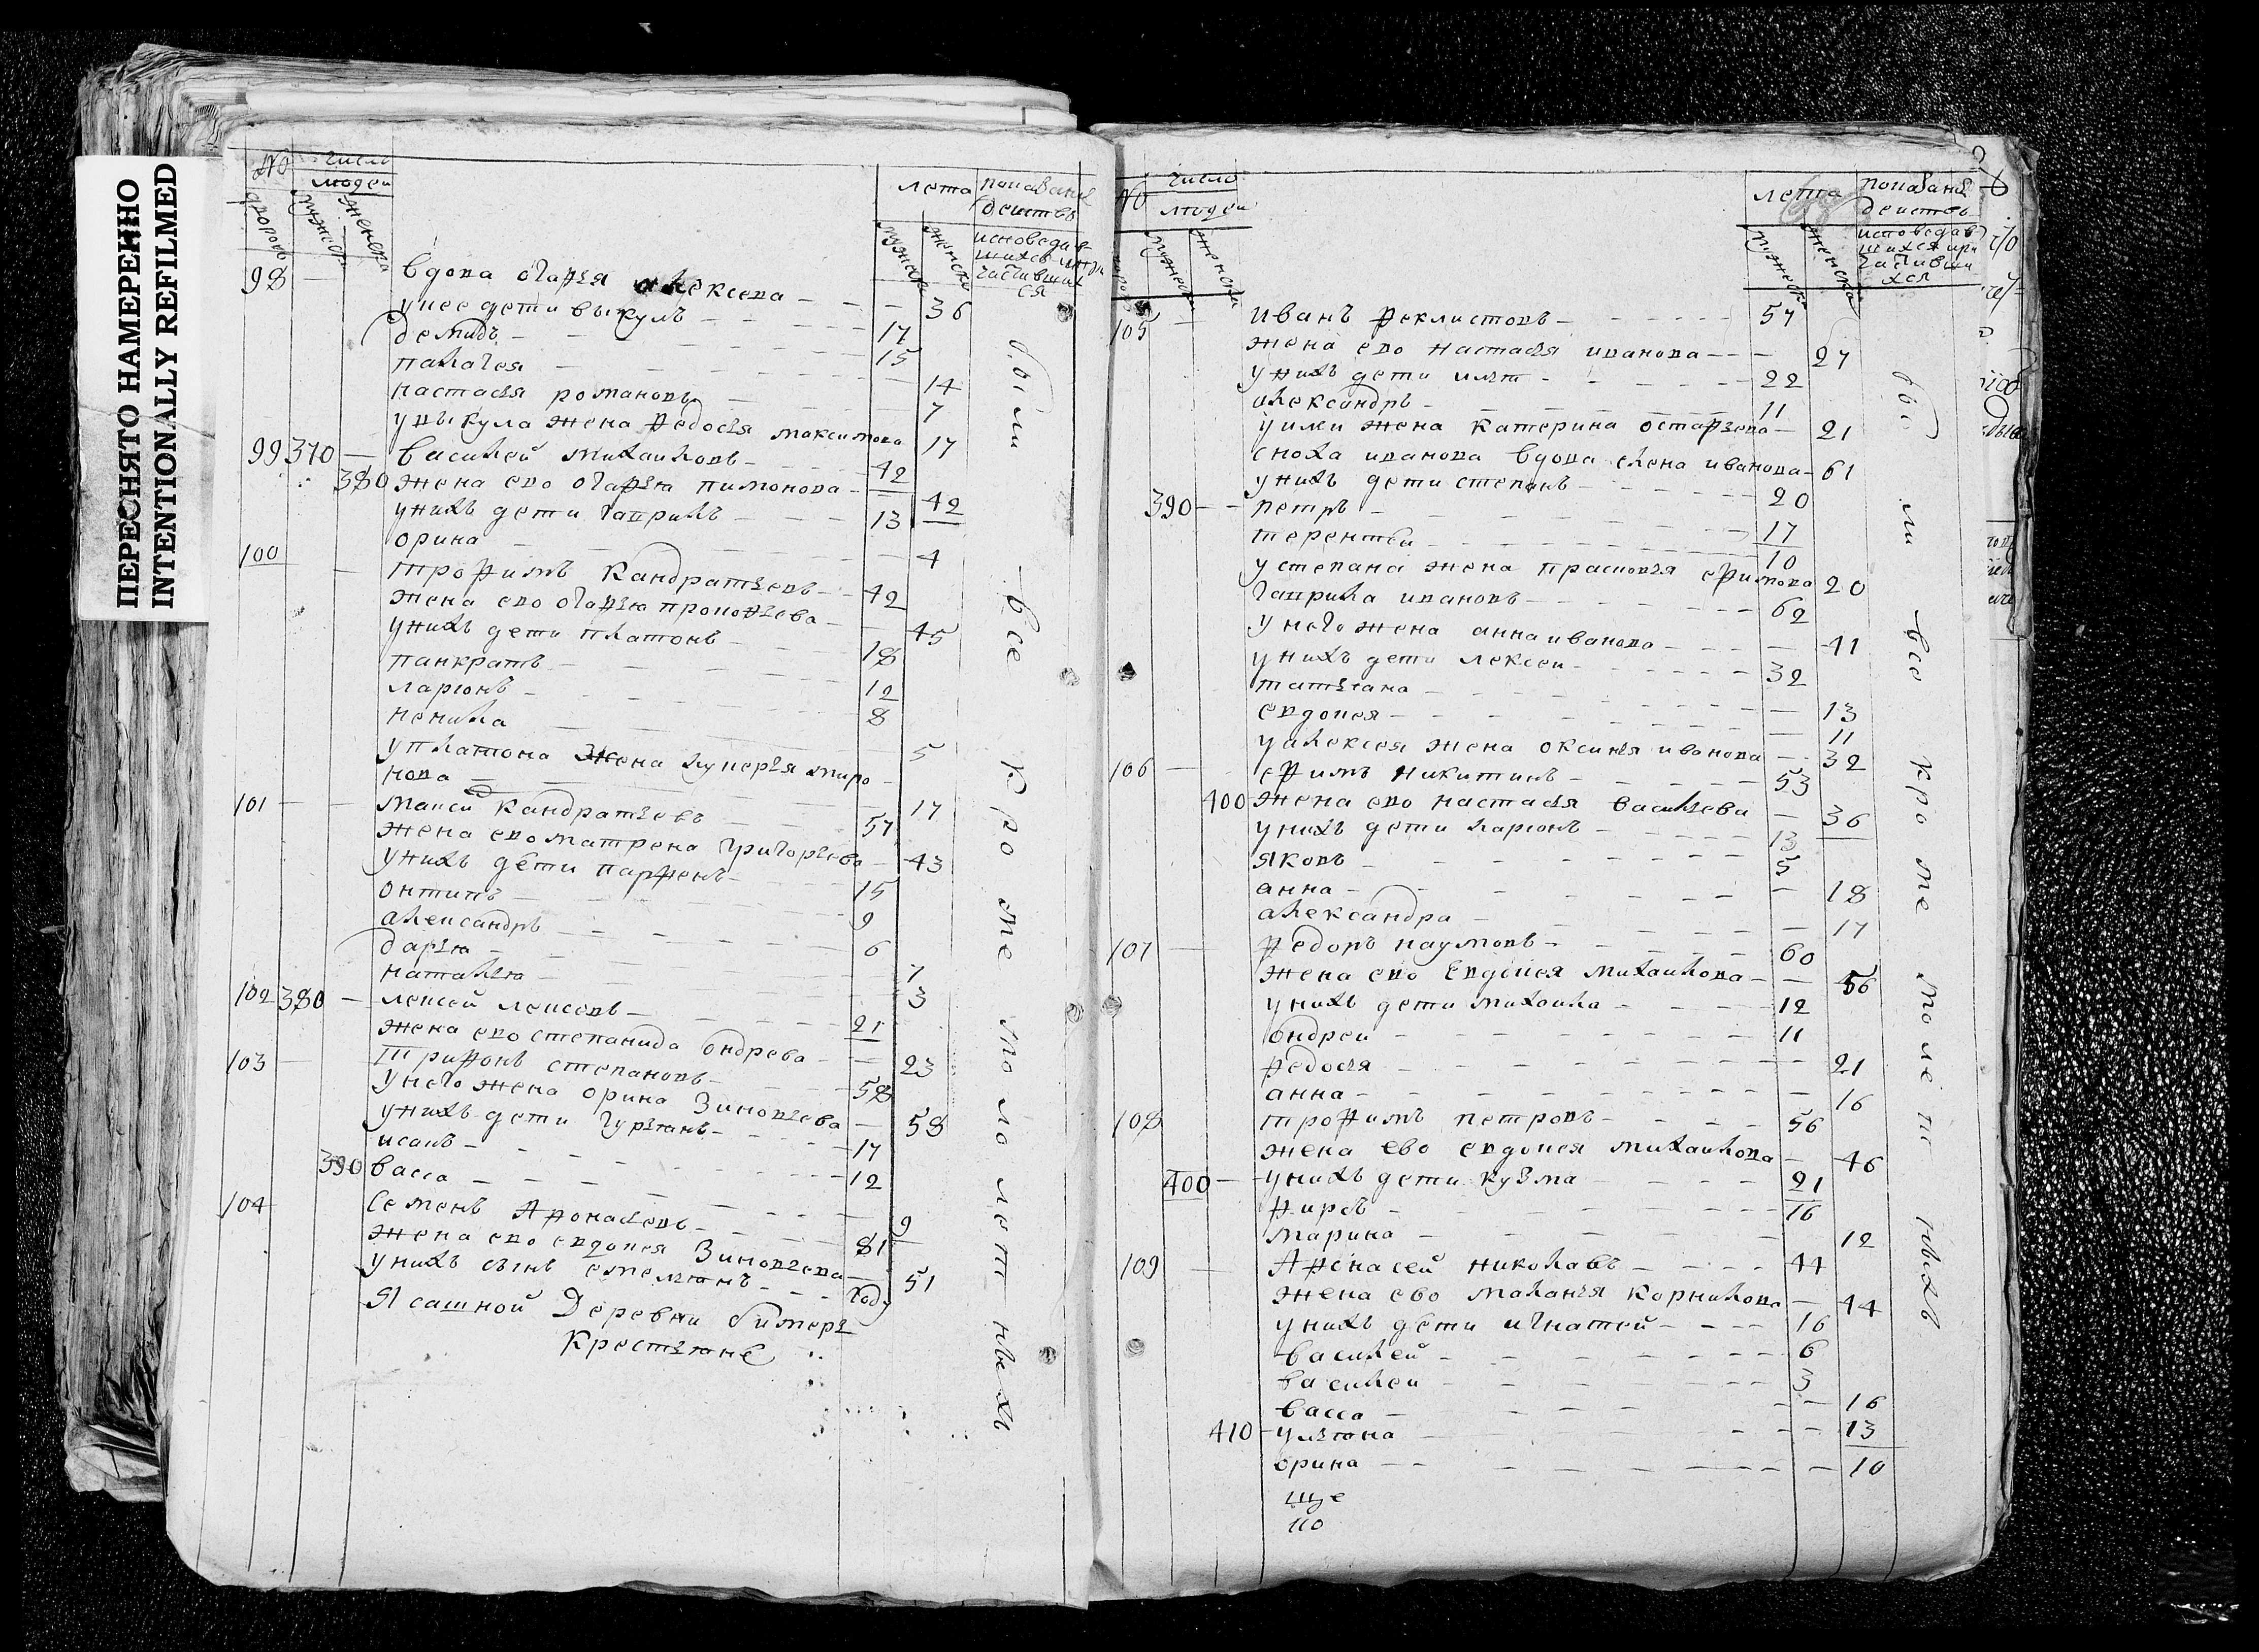 ПЕРЕСНЯТО НАМЕРЕННО
INTENTIONALLY REFILMED
№ число людей лета показание действъ
дворовъ мужеска женска мужеска женска исповедавшихся и причастившихся
98 вдова огафья алексева 36
у нее дети выкулъ 17
демидъ 15
палагея 14
настасья романовы 7
у выкула жена федосья максимова 17
99 370 василей михаиловъ 42
380 жена ево огафья пимонова 42
у нихъ дети гаврилъ 13
орина 4
100 трофимъ кандратьевъ 42
жена ево огафья прокофьева 45
у нихъ дети платонъ 18
панкратъ 12
ларионъ 8
ненила 5
у платона жена лукерья миро
нова 17
101 макси кандратьевъ 57
жена ево матрена григорьева 43
у нихъ дети парфенъ 15
онтипъ 9
александръ 6
дарья 7
наталья 3
102 380 лексей лексевъ 21
жена ево степанида ондрева 23
103 трифонъ степановъ 58
у него жена орина зиновьева 58
у нихъ дети гурьянъ 17
исакъ 12
390 васса 9
104 семенъ афонасьевъ 81
жена ево евдокея зиновьева 51
у нихъ сынъ емельянъ году
Ясашной деревни бимерь
крестьяне
были все кроме малолетныхъ
№ число людей лета показание действъ
мужеска женска мужеска женска исповедавшихся и причастившихся
105 иванъ феклистовъ 57
жена ево настасья иванова 27
у нихъ дети 22
александръ 11
жена катерина остафьева 21
сноха иванова вдова елена иванова 61
у нихъ дети степанъ 20
390 петръ 17
терентеи 10
у степана жена прасковья ефимова 20
гаврила ивановъ 62
у него жена анна иванова 41
у нихъ дети лексеи 32
татьяна 13
евдокея 11
у алексея жена оксинья иванова 32
106 ефимъ никитинъ 53
400 жена ево настасья васильева 36
у нихъ дети ларионъ 13
яковъ 5
анна 18
александра 17
107 федоръ наумовъ 60
жена ево евдокея михаилова 56
у нихъ дети михаила 12
ондреи 11
федосья 21
анна 16
108 трофимъ петровъ 56
жена ево евдокея михаилова 46
400 у нихъ дети кузма 21
фирсъ 16
марина 12
109 афонасей николавъ 44
жена ево маланья корнилова 44
у нихъ дети игнатей 16
василей 6
василеи 3
васса 16
410 ульяна 13
орина 10
были все кроме малолетныхъ